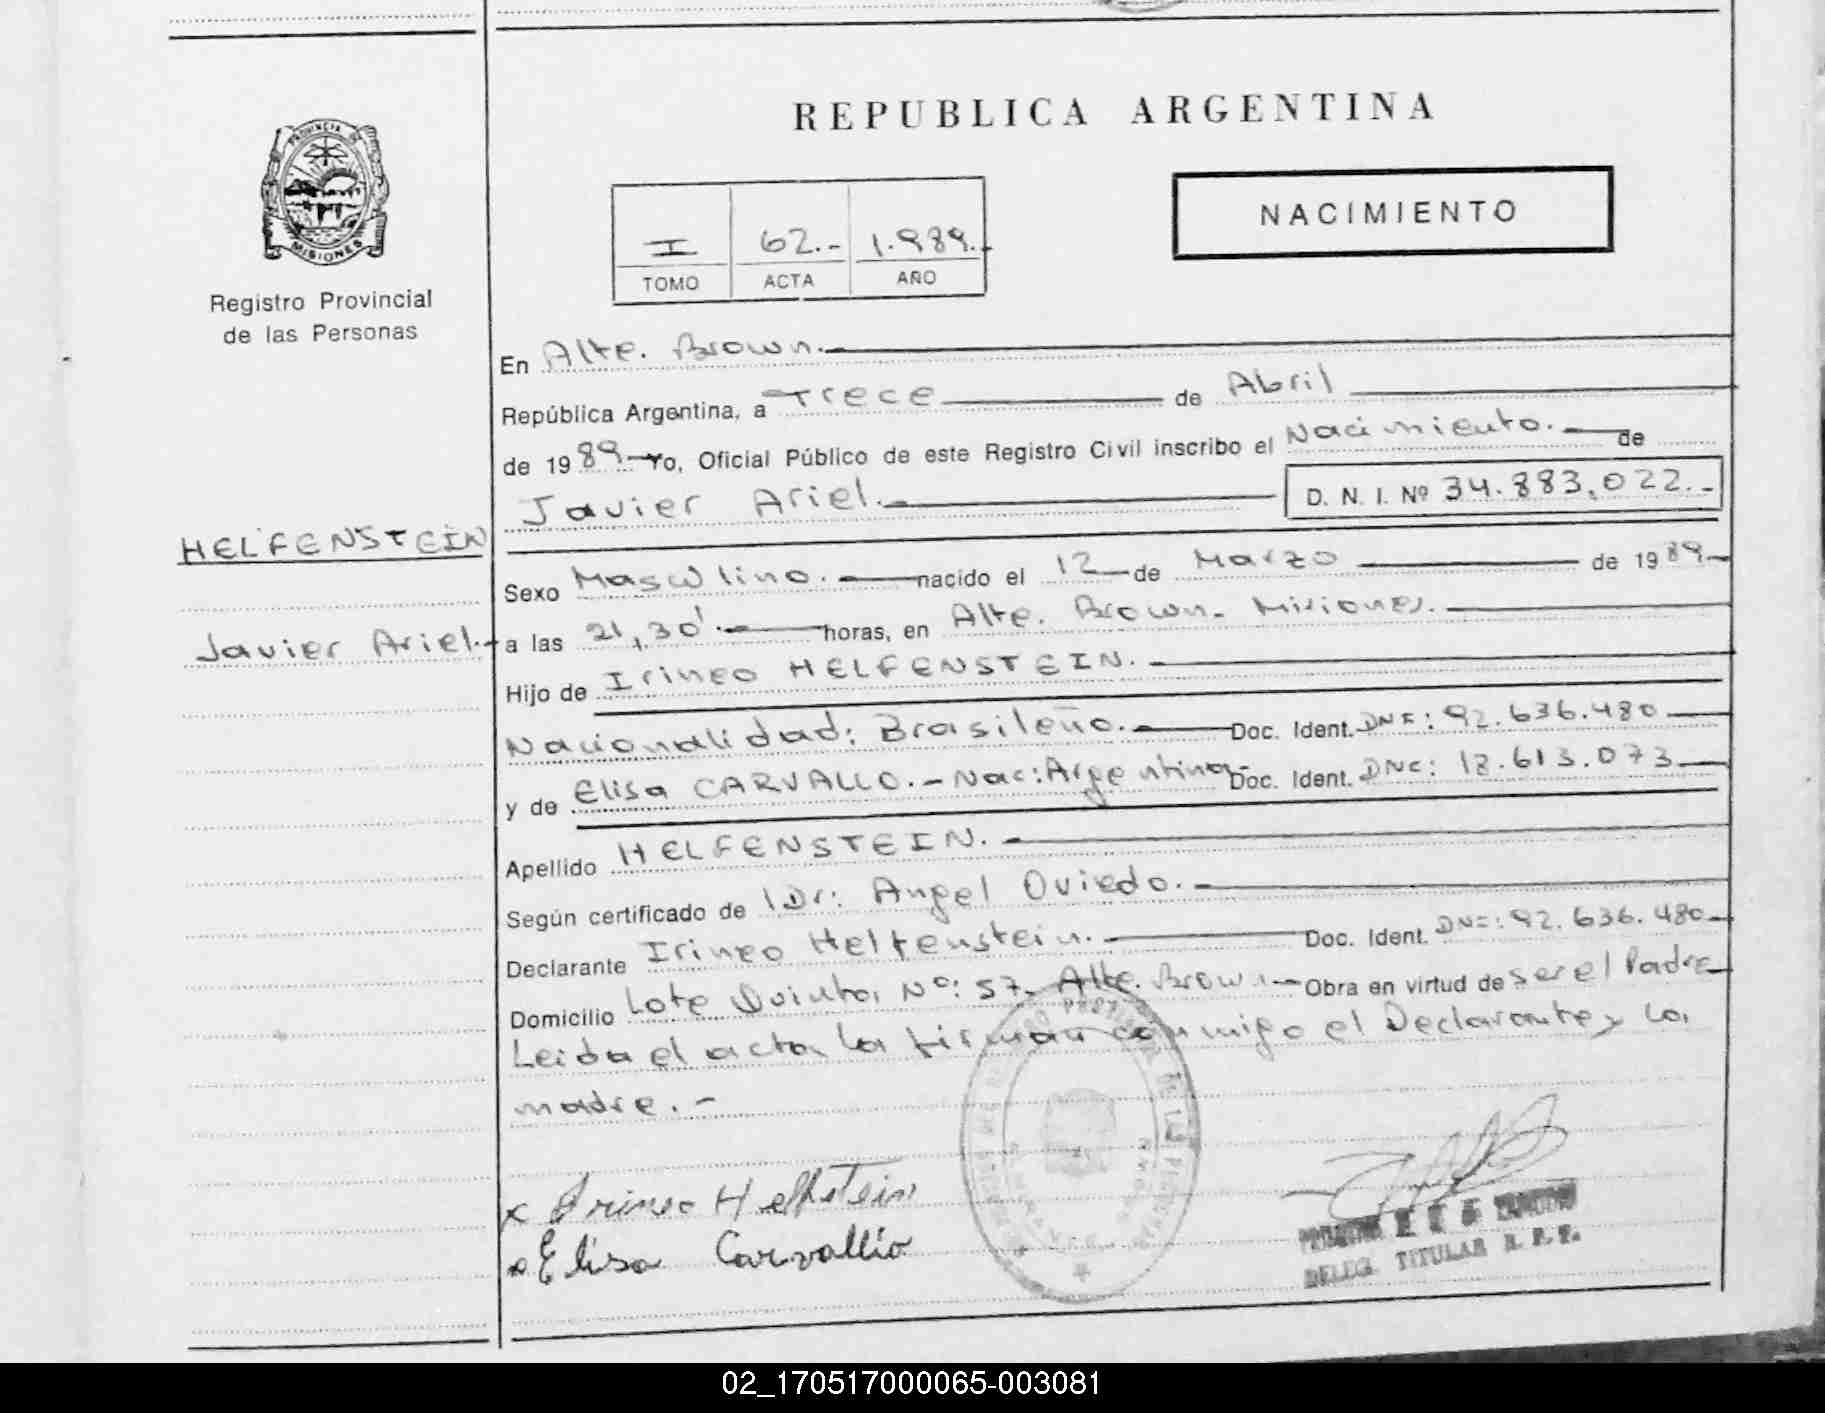 REPUBLICA ARGENTINA
PROVINCIA DE
MISIONES
Registro Provincial
de las Personas
I 62.- 1.989.-
TOMO ACTA AÑO
NACIMIENTO
En Alte. Brown.-
República Argentina, a Trece de Abril
de 1989 Yo, Oficial Público de este Registro Civil inscribo el Nacimiento.- de
Javier Ariel.- D. N. I. Nº 34.883.022.-
HELFENSTEIN
Javier Ariel.-
Sexo Masculino.- nacido el 12 de Marzo de 1989-
a las 21,30'.- horas, en Alte. Brown- Misiones.-
Hijo de Irineo HELFENSTEIN.-
Nacionalidad: Brasileño.- Doc. Ident. DNI: 92.636.480-
y de Elisa CARVALLO.- Nac: Argentina- Doc. Ident. DNI: 18.613.073-
Apellido HELFENSTEIN.-
Según certificado de Dr: Angel Oviedo.-
Declarante Irineo Helfenstein.- Doc. Ident. DNI: 92.636.480-
Domicilio Lote Quinta, Nº: 57- Alte. Brown- Obra en virtud de ser el Padre
Leida el acta la firman conmigo el Declarante y la
madre.-
x Irineo Helfstein
Elisa Carvallio
DELEG. TITULAR R. P. P.
02_170517000065-003081